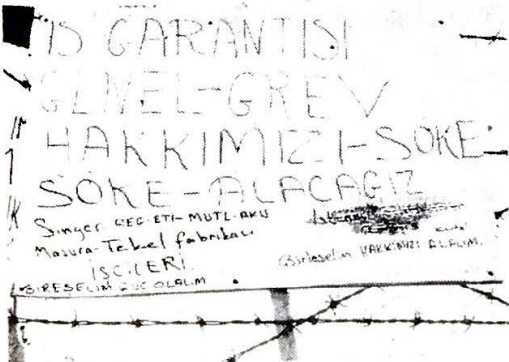 İŞ GARANTISI
GENEL-GREV
HAKKIMIZI-SÖKE
SÖKE-ALACAĞIZ
Sınger AEG-ETİ-MUTL-AKU
Masura-Tekel fabrikası
İŞÇİLERİ
BİRLEŞELİM HAKKIMIZI ALALIM.
BİRLEŞELİM GÜÇ OLALIM